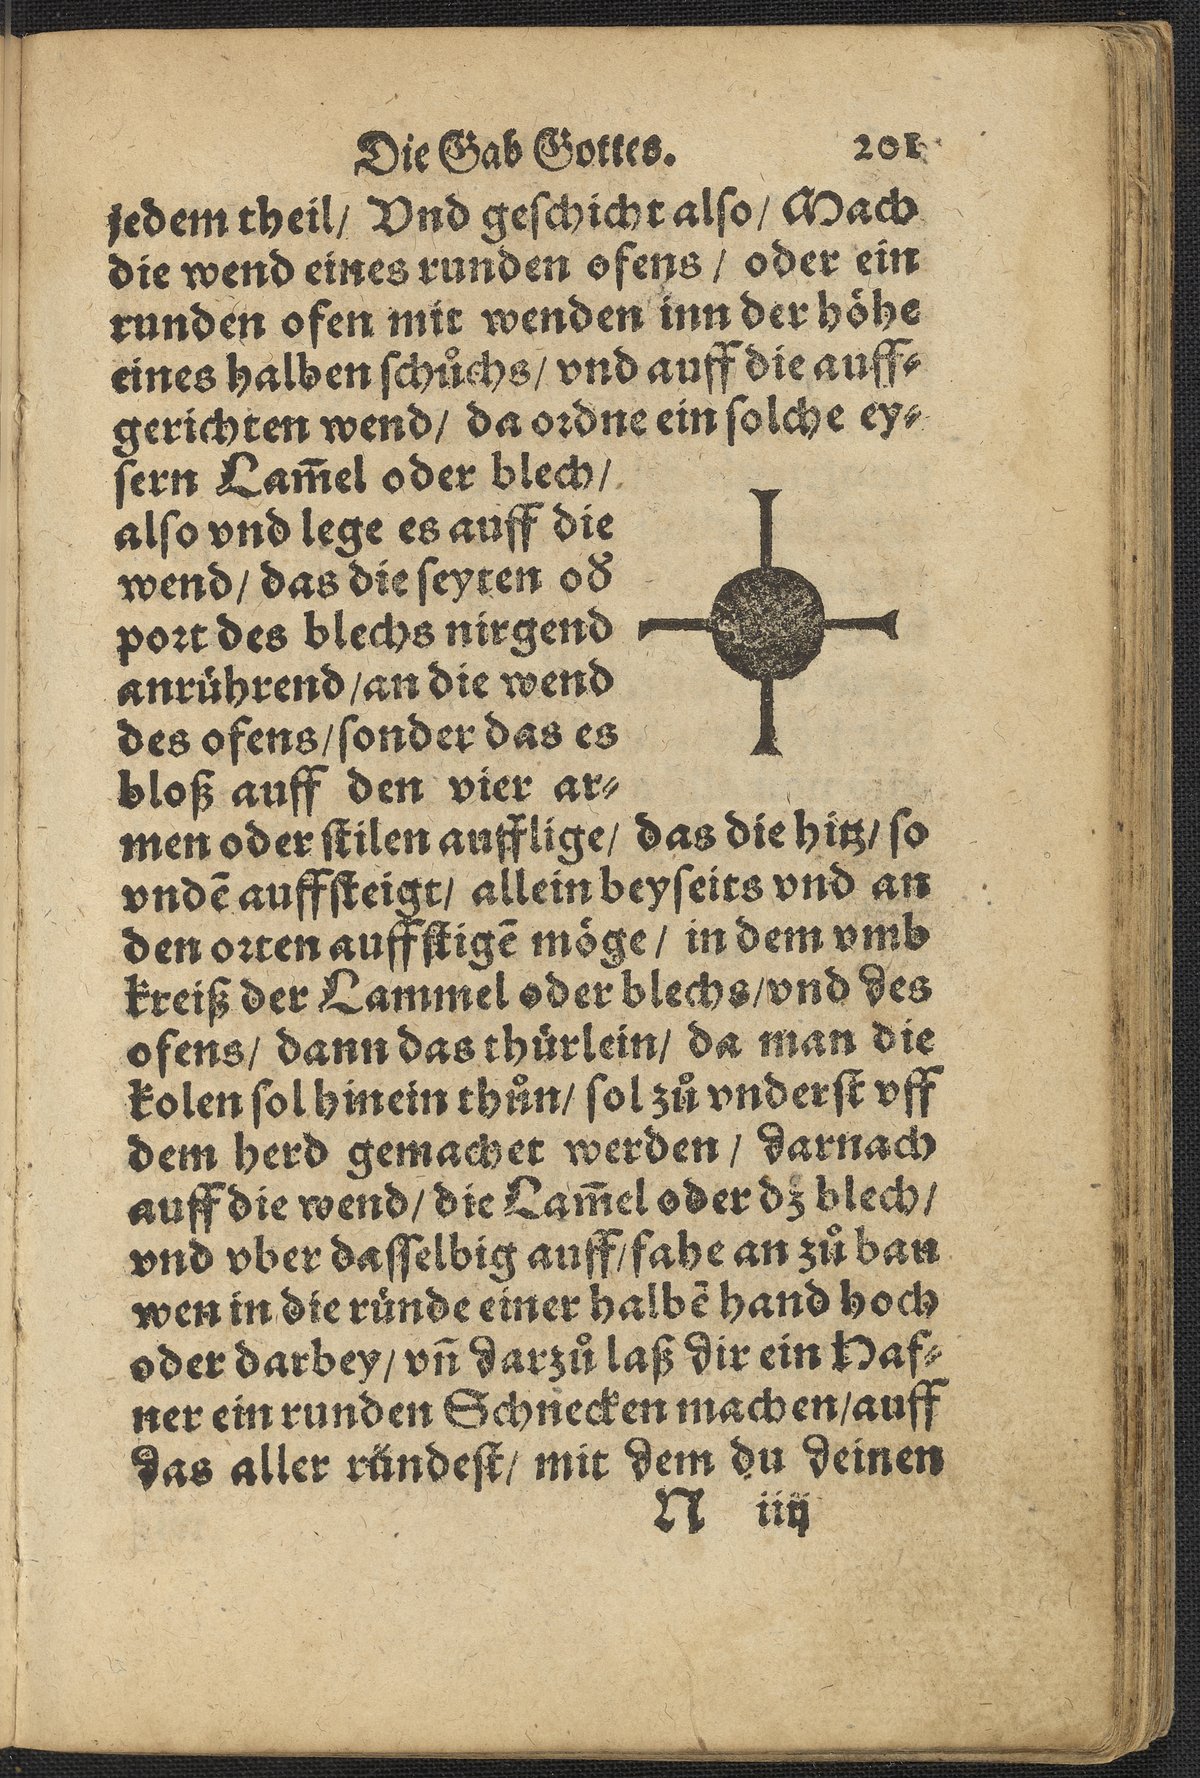 Die Gab Gottes. 201
jedem theil/ Vnd geschicht also/ Mach
die wend eines runden ofens / oder ein
runden ofen mit wenden inn der höhe
eines halben schůchs/ vnd auff die auff⸗
gerichten wend/ da ordne ein solche ey⸗
sern Lam̄el oder blech/
also vnd lege es auff die
wend/ das die seyten od̕
port des blechs nirgend
anrührend/an die wend
des ofens/sonder das es
bloß auff den vier ar⸗
men oder stilen aufflige/ das die hitz/ so
vndē auffsteigt/ allein beyseits vnd an
den orten auffstigē möge/ in dem vmb
kreiß der Lammel oder blechs/vnd des
ofens/ dann das thürlein/ da man die
kolen sol hinein thůn/ sol zů vnderst vff
dem herd gemachet werden / darnach
auff die wend/ die Lam̄el oder dz blech/
vnd vber dasselbig auff/fahe an zů bau
wen in die ründe einer halbē hand hoch
oder darbey/ vn̄ darzů laß dir ein Haf⸗
ner ein runden Schnecken machen/auff
das aller ründest/ mit dem du deinen
N iiij